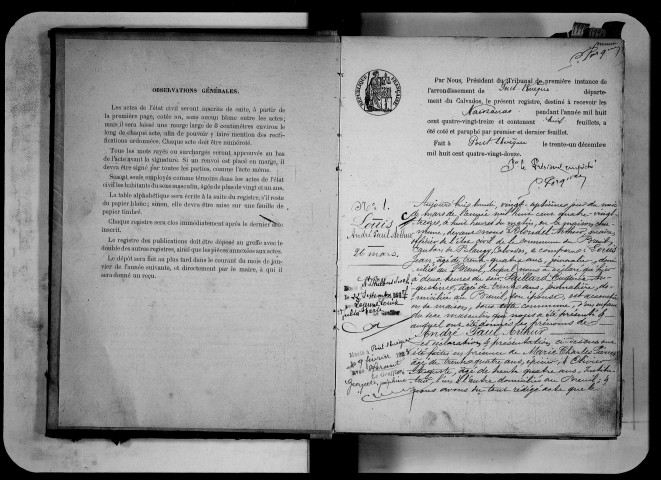 OBSERVATIONS GÉNÉRALES.
Les actes de l'état civil seront inscrits de suite, à partir de
la première page, cotée 1, sans aucun blanc entre les actes;
mais il sera laissé une marge large de 8 centimètres environ le
long de chaque acte, afin de pouvoir y faire mention des recti-
fications ordonnées. Chaque acte doit être numéroté.
Tous les mots rayés ou surchargés seront approuvés au bas
de l'acte avant la signature. Si un renvoi est placé en marge, il
devra être signé par toutes les parties, comme l'acte même.
Seront seuls employés comme témoins dans les actes de l'état
civil les habitants du sexe masculin, âgés de plus de vingt et un ans.
La table alphabétique sera écrite à la suite du registre, s'il reste
du papier blanc; sinon, elle devra être mise sur une feuille de
papier timbré.
Chaque registre sera clos immédiatement après le dernier acte
inscrit.
Le registre des publications doit être déposé au greffe avec le
double des autres registres, ainsi que les pièces annexées aux actes.
Le dépôt sera fait au plus tard dans le courant du mois de jan-
vier de l'année suivante, et directement par le maire, à qui il
sera donné un reçu.
RÉPUBLIQUE FRANÇAISE
Par Nous, Président du Tribunal de première instance de
l'arrondissement de Pont-l'Évêque départe-
ment du Calvados, le présent registre, destiné à recevoir les
Naissances pendant l'année mil huit
cent quatre-vingt-treize et contenant huit feuillets, a
été coté et paraphé par premier et dernier feuillet.
Fait à Pont-l'Évêque le trente-un décembre
mil huit cent quatre-vingt-douze.
Pr le Président empêché
No 1.
Louis
André Paul Arthur
26 mars.
Aujourd'hui lundi vingt-septième jour du mois
de mars de l'année mil huit cent quatre-vingt-
treize, à huit heures du matin, en la maison com-
mune, devant nous Blondel Arthur, maire,
officier de l'état civil de la commune du Breuil,
canton de Blangy, Calvados, a comparu Louis
Jean, âgé de trente-quatre ans, journalier, domi-
cilié au Breuil, lequel nous a déclaré qu'hier
à deux heures du soir, Paillard Eugénie
Augustine, âgée de trente ans, journalière, do-
miciliée au Breuil, son épouse, est accouchée
en sa maison, sous cette commune, d'un enfant
du sexe masculin qui nous a été présenté &
auquel ont été donnés les prénoms de
André Paul Arthur
ces déclaration & présentation ci-dessus ont
été faites en présence de Marie Charles
âgé de trente-quatre ans, épicier, &
Auguste, âgé de trente quatre ans, institu-
teur, l'un & l'autre domiciliés au Breuil, &
nous avons du tout rédigé acte que le
Pont l'Évêque
9 février